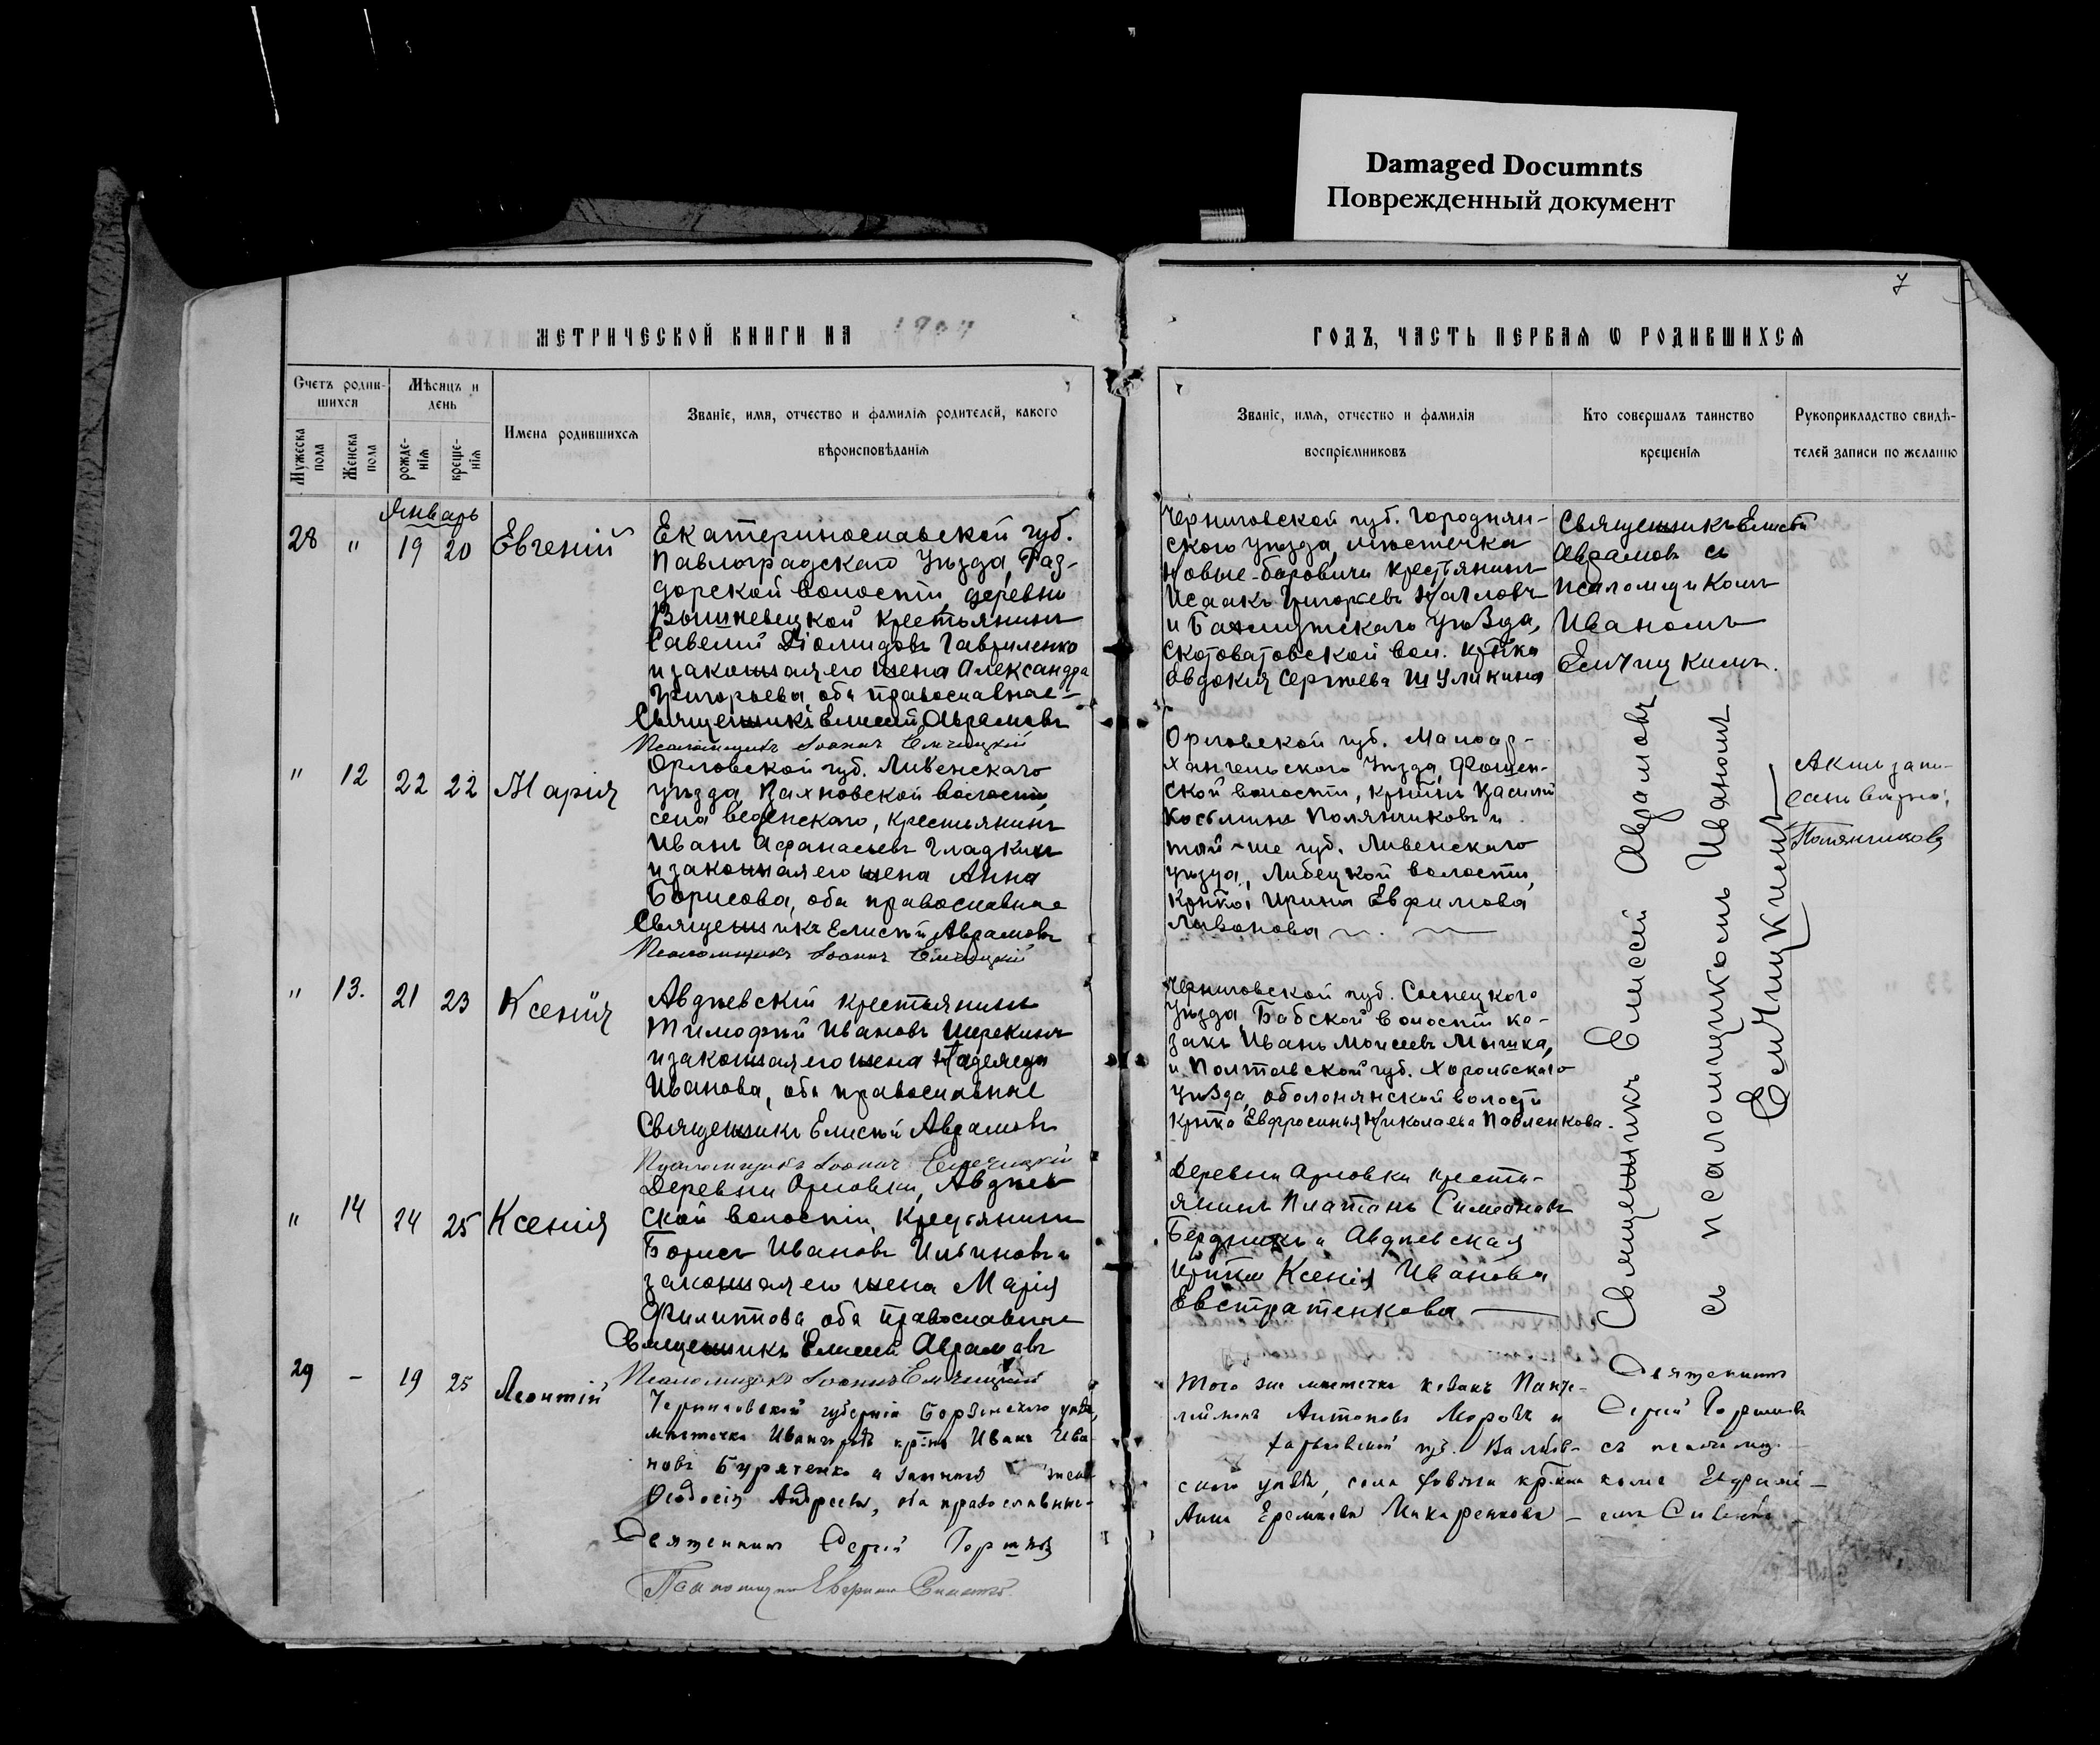 Damaged Documnts
Поврежденный документ
7
МЕТРИЧЕСКОЙ КНИГИ НА
ГОДЪ, ЧАСТЬ ПЕРВАЯ Ѡ РОДИВШИХСЯ
Счетъ родив-
шихся
Мужеска
пола
Женска
пола
Мѣсяцъ и
день
рожде-
нія
креще-
нія
Имена родившихся
Званіе, имя, отчество и фамилія родителей, какого
вѣроисповѣданія
Званіе, имя, отчество и фамилія
воспріемниковъ
Кто совершалъ таинство
крещенія
Рукоприкладство свидѣ-
телей записи по желанію
Январь
28 " 19 20 Евгеній
Екатеринославской губ.
Павлоградскаго уѣзда, Раз-
дорской волости деревни
Вышневецкой крестьянинъ
Савелій Діомидовъ Гавриленко
и законная его жена Александра
Григорьева, оба православные
Священникъ Елисей Авраловъ
Псаломщикъ Іоаннъ Емчицкій
Черниговской губ. Городнян-
скаго уѣзда, мѣстечка
Новые-боровичи крестьянинъ
Исаакъ Григорьевъ
и Бахмутскаго уѣзда,
Скотоватовской вол. кр̃тка
Евдокія Сергѣева Шуликина
Священникъ Елисей
Авраловъ съ
псаломщикомъ
Иваномъ
Емчицкимъ.
" 12 22 22 Марія
Орловской губ. Ливенскаго
уѣзда, волости,
села Веденскаго, крестьянинъ
Иванъ Афанасьевъ Гладкихъ
и законная его жена Анна
Борисова, оба православные
Священникъ Елисей Авраловъ
Псаломщикъ Іоаннъ Емчицкій
Орловской губ. Малоар-
хангельскаго уѣзда, Фошен-
ской волости, кр̃нинъ Василій
Косьминъ Полянчиковъ и
той-же губ. Ливенскаго
уѣзда, волости,
кр̃тка Ирина Евфимова
Ливонова
Актъ запи-
санъ вѣрно:
Полянчиковъ
" 13. 21 23 Ксенія
Авдѣевскій крестьянинъ
Тимофей Ивановъ Шерекинъ
и законная его жена Надежда
Иванова, оба православные
Священникъ Елисей Авраловъ
Псаломщикъ Іоаннъ Емчицкій
Черниговской губ. Сосницкаго
уѣзда, Бабской волости ка-
закъ Иванъ Моисеевъ Мышка,
и Полтавской губ. Хорольскаго
уѣзда, оболонянской волости
кр̃тка Евфросинья Николаева Павленкова.
Священникъ Елисей Авраловъ
съ псаломщикомъ Иваномъ
Емчицкимъ
" 14 24 25 Ксенія
Деревни Орловки, Авдѣев-
ской волости, крестьянинъ
Борисъ Ивановъ и
законная его жена Марія
Филиппова, оба православные
Священникъ Елисей Авраловъ
Псаломщикъ Іоаннъ Емчицкій
Деревни Орловки кресть-
янинъ Платонъ Симеоновъ
Бердникъ и Авдѣевская
кр̃тка Ксенія Иванова
Евстратенкова
29 - 19 25 Леонтій
Черниговской губерніи Борзенскаго уѣзда,
мѣстечка Ивангородъ кр̃тнъ Иванъ Ива-
новъ и законная жена
Ѳеодосія Андреева, оба православные.
Священникъ Сергій
Псаломщикъ
Того же мѣстечка казакъ Панте-
леймонъ Антоновъ Морозъ и
Харьковской губ. Валков-
скаго уѣзда, села кр̃тка
Анна Еремѣева Макаренкова
Священникъ
Сергій
съ псаломщи-
комъ